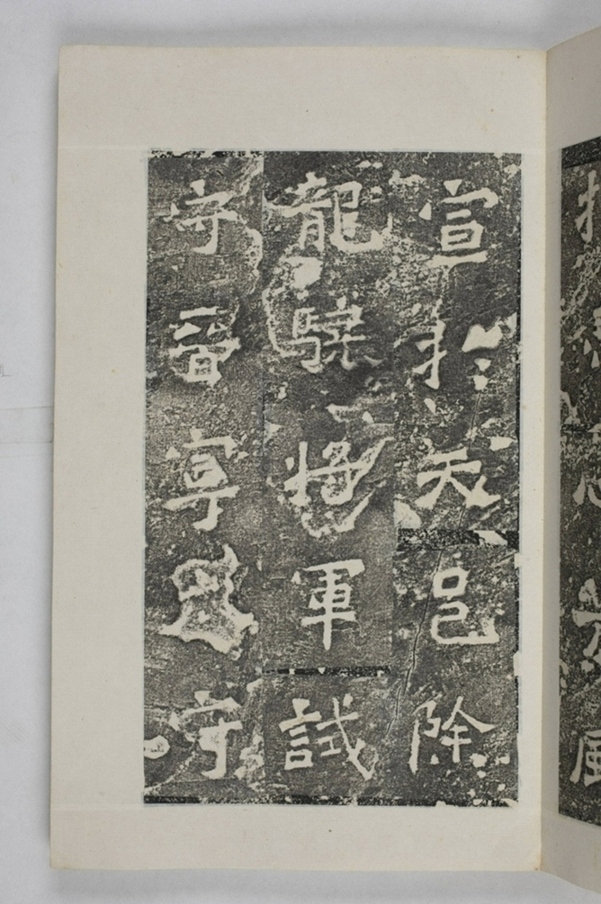 宣於天邑除
龍驤將軍試
守晉寧守